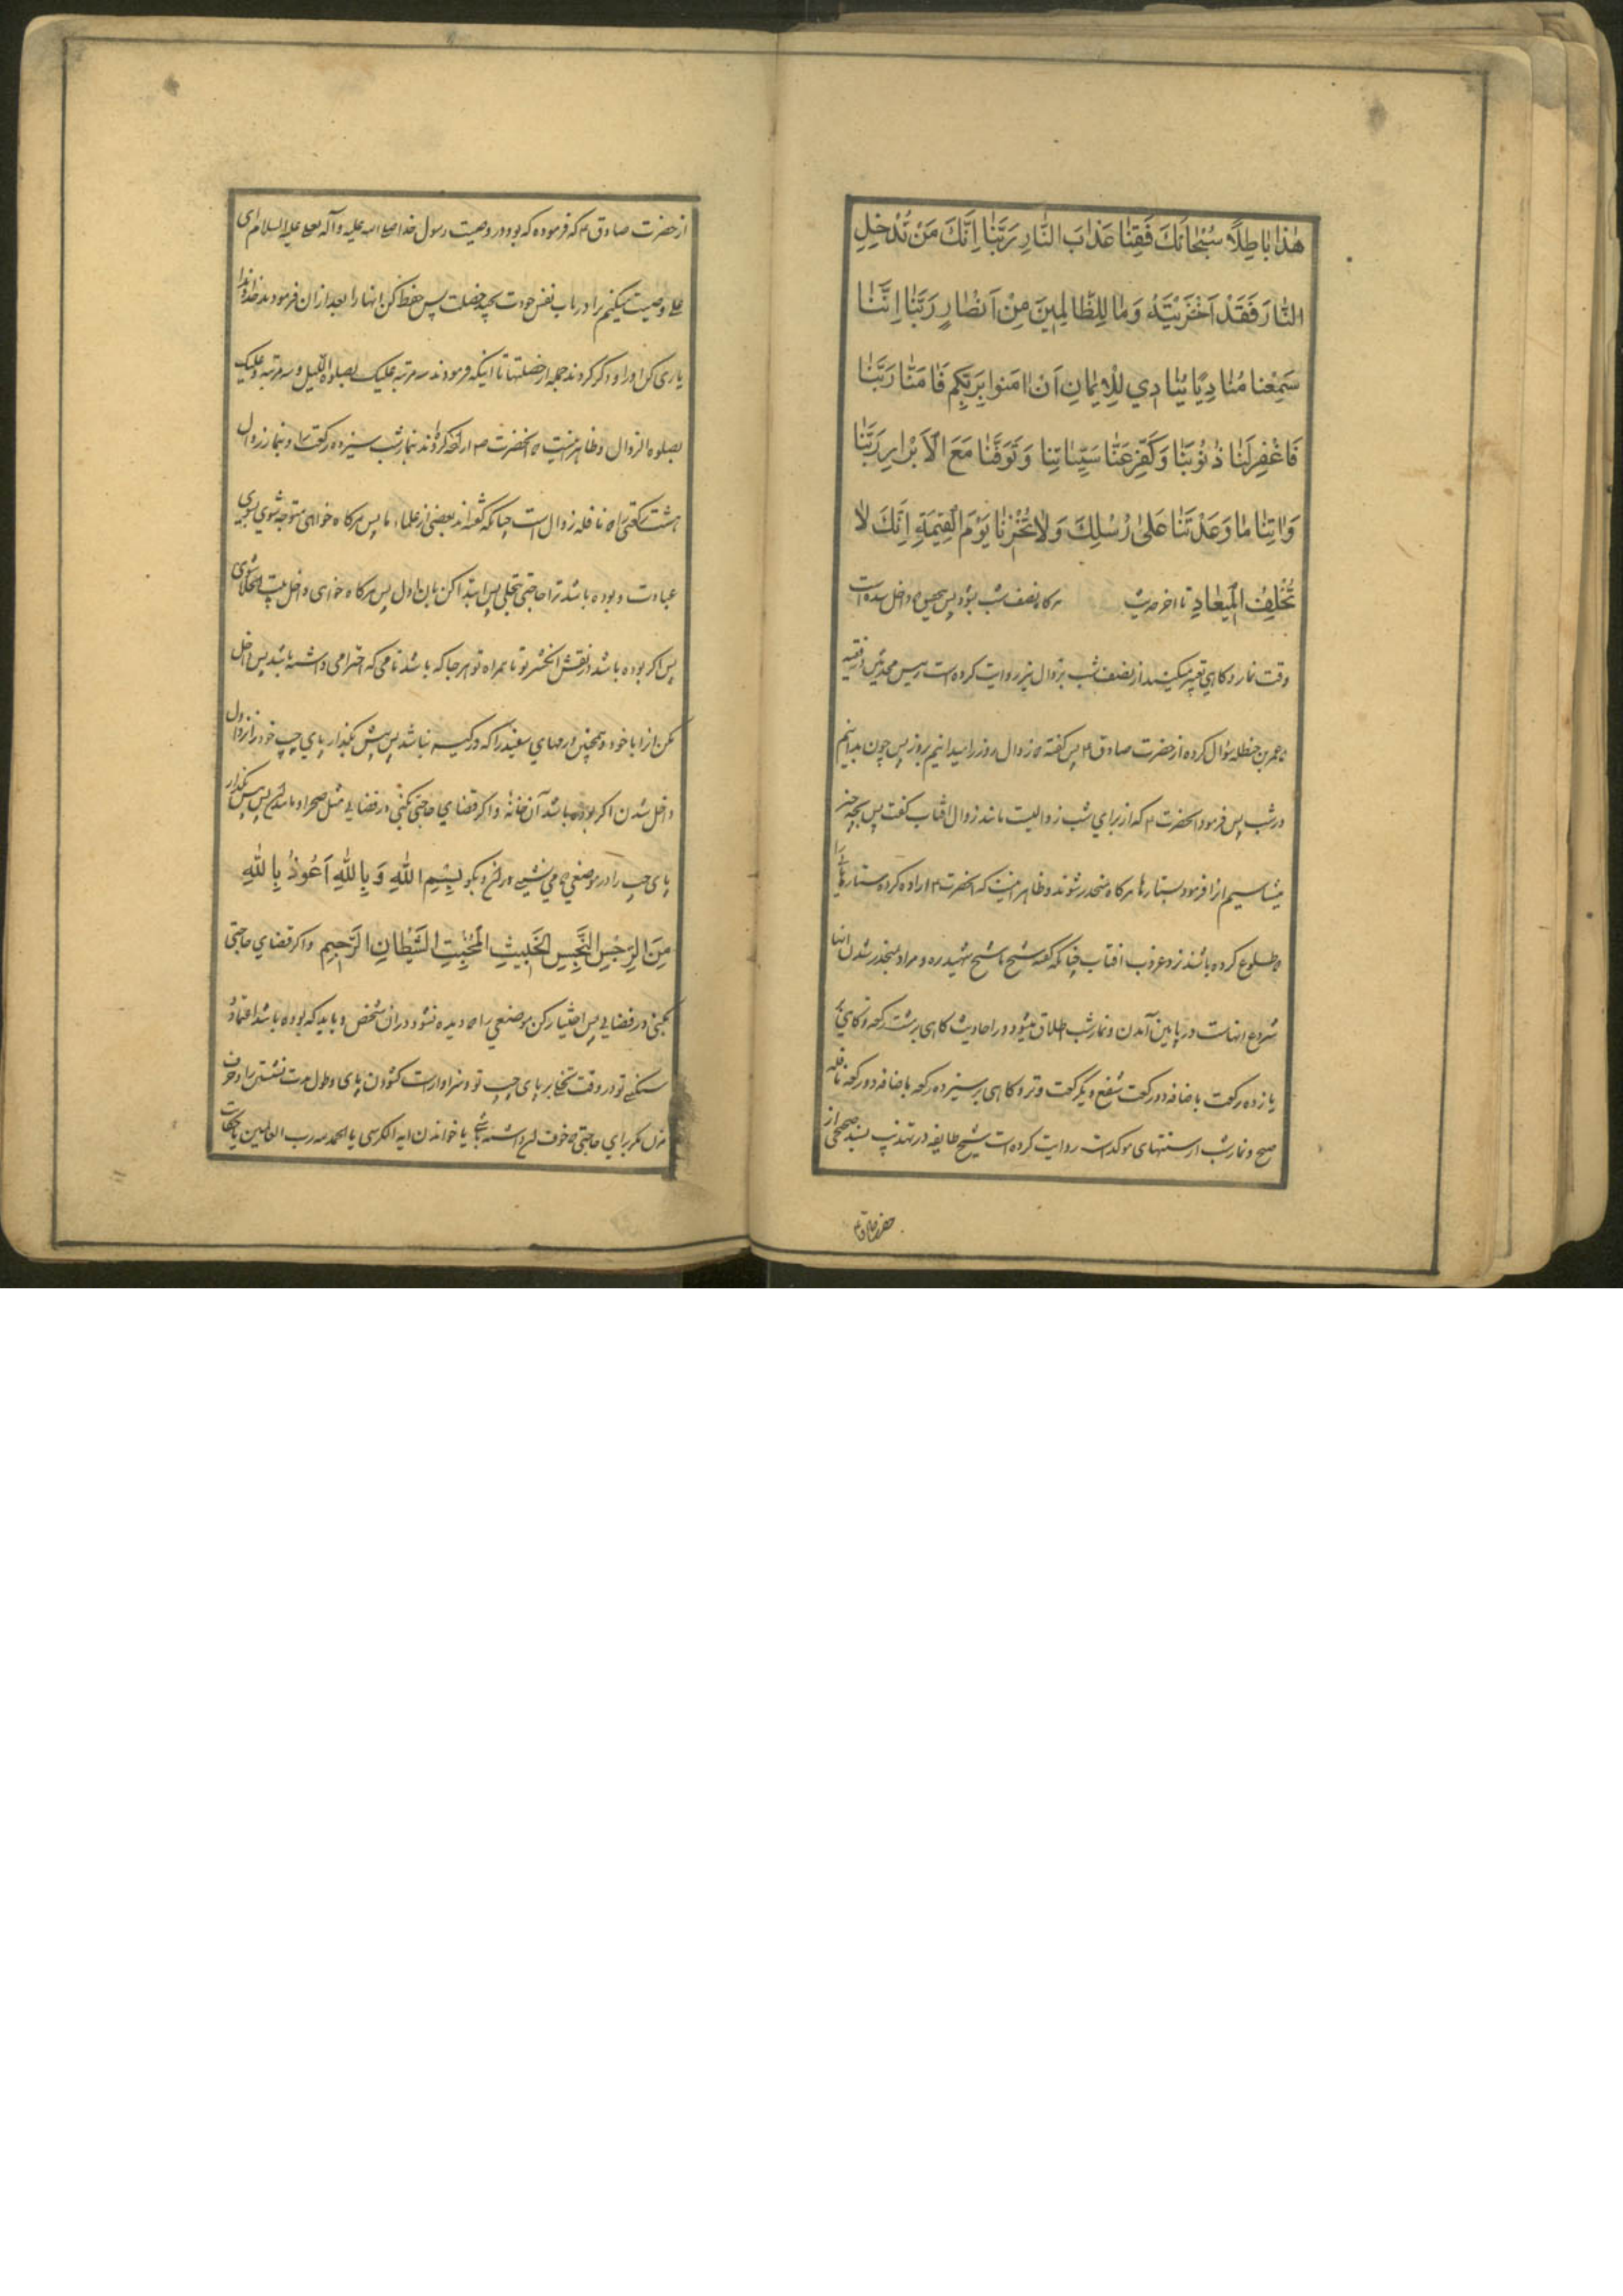 هٰذا بٰاطِلًا سُبْحٰانَكَ فَقِنٰا عَذٰابَ النّٰارِ رَبَّنٰا اِنَّكَ مَنْ تُدْخِلِ
النّٰارَ فَقَدْ اَخْزَيْتَهُ وَمٰا لِلظّٰالِمينَ مِنْ اَنْصٰارٍ رَبَّنٰا اِنَّنٰا
سَمِعْنا مُنٰادِيًا يُنٰادي لِلْايمٰانِ اَنْ اٰمَنوا بِرَبِّكُم فَاٰمَنّٰا رَبَّنٰا
فَاغْفِرلَنٰا ذُنُوبَنٰا وَكَفِّرعَنّٰا سَيِّئٰاتِنٰا وَتَوَفَّنٰا مَعَ الْاَبْرٰارِ رَبَّنٰا
وَاٰتِنٰا مٰا وَعَدْتَنٰا عَلىٰ رُسُلِكَ وَلاٰ تُخْزِنٰا يَوْمَ الْقِيٰمَةِ اِنَّكَ لاٰ
تُخْلِفُ الْميعٰادِ تا اخر حديث هر كاه نصف شب بشود پس بتحقيق كه داخل شده است
وقت نماز و كاهي تعبير ميكنند از نصف شب بزوال نيز روايت كرده است رئيس محدثين و فقيه
كه عمر بن حنظله سؤال كرده از حضرت صادق ع پس كفته كه زوال روز را ميدانيم بروز پس چون بدانيم
در شب پس فرمود انحضرت ع كه از براي شب زواليست مانند زوال افتاب كفت پس بچه چيز
ميشناسيم انرا فرمود بستارها هر كاه منحدر شوند و ظاهر اينست كه انحضرت ع اراده كرده ستارهائي را
كه طلوع كرده باشند نزد غروب افتاب چنانكه كفته شيخ ما شيخ شهيد ره و مراد بمنحدر شدن انها
شروع انهاست در پايين آمدن و نماز شب اطلاق ميشود در احاديث كاهي بر هشت ركعه و كاهي بر
يازده ركعت باضافه دو ركعت شفع و يكركعت وتر و كاهي بر سيزده ركعه باضافه دو ركعه نافله
صبح و نماز شب از سنتهاى موكد است روايت كرده است شيخ طايفه در تهذيب بسند صحيحى از
حضرت صادق ع
از حضرت صادق ع كه فرموده كه بود در وصيت رسول خدا صلى الله عليه وآله بعلى عليه السلام اى
على وصيت ميكنم ترا در باب نفس خودت بچند خصلت پس حفظ كن انها را بعد از ان فرمودند خداوندا
يارى كن او را و ذكر كردند جمله از خصلتها تا اينكه فرمودند سه مرتبه عليك بصلوة الليل و سه مرتبه وعليك
بصلوة الزوال و ظاهر اينست كه انحضرت ص اراده كردند بنماز شب سيزده ركعت را و بنماز زوال
هشت ركعتى را كه نافله زوال است چنانكه كفته اند بعضى از علماء ما پس هر كاه خواهى متوجه شوي بسوى
عبادت و بوده باشد ترا حاجتى بتخلى پس ابتدا كن بان اول پس هر كاه خواهى داخل بيت الخلا شوى
پس اكر بوده باشد در نقش انكشتر تو يا همراه تو هر جا كه باشد نامى كه احترامى داشته باشد پس داخل
مكن انرا با خود و همچنين درمهاي سفيد را كه در كيسه نباشد پس پيش بكذار پاي چپ خود را نزد اول
داخل شدن اكر بوده باشد آن خانه و اكر قضاي حاجتى بكنى در فضايى مثل صحرا و مانند ان پس پيش بكذار
پاى چپ را در موضعي كه مي نشينى در ان و بكو بِسْمِ اللّٰهِ وَ بِاللّٰهِ اَعُوذُ بِاللّٰهِ
مِنَ الرِّجْسِ النَّجِسِ الخَبيثِ الْمُخْبِثِ الشَّيْطٰانِ الرَّجيمِ و اكر قضاي حاجتى
بكنى در فضايى پس اختيار كن موضعي را كه ديده نشود در ان شخص و بايد كه بوده باشد اعتماد
سنكينى تو در وقت تخلى بر پاى چپ تو و سزاوار است كشودن پاى و طول مدت نشستن را و حرف
مزن مكر براي حاجتى كه خوف ان داشته باشى يا خواندن اية الكرسى يا الحمد لله رب العالمين يا حكايت